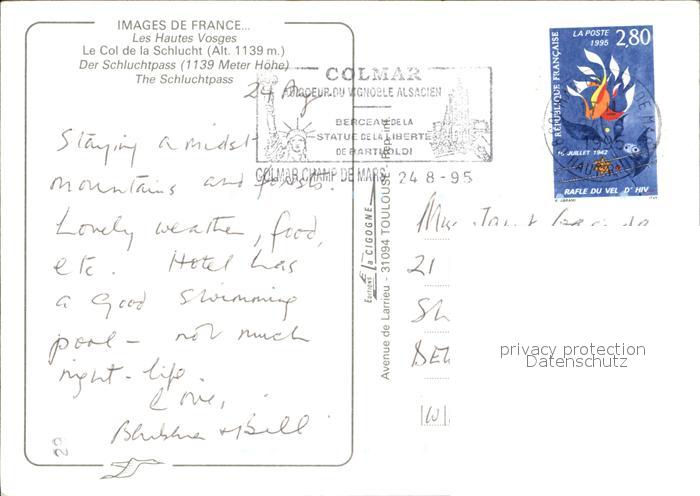 IMAGES DE FRANCE...
Les Hautes Vosges
Le Col de la Schlucht (Alt. 1139 m.)
Der Schluchtpass (1139 Meter Höhe)
The Schluchtpass
24 Aug
Staying amidst
mountains and forests.
Lovely weather, food,
etc. Hotel has
a good swimming
pool – not much
night-life.
Love,
+ Bill
COLMAR
COEUR DU VIGNOBLE ALSACIEN
BERCEAU DE LA
STATUE DE LA LIBERTE
DE BARTHOLDI
COLMAR CHAMP DE MARS
24 8-95
LA POSTE
1995
2,80
RÉPUBLIQUE FRANÇAISE
16 JUILLET 1942
RAFLE DU VEL D'HIV
EDITIONS la CIGOGNE
Avenue de Larrieu - 31094 TOULOUSE
21
privacy protection
Datenschutz